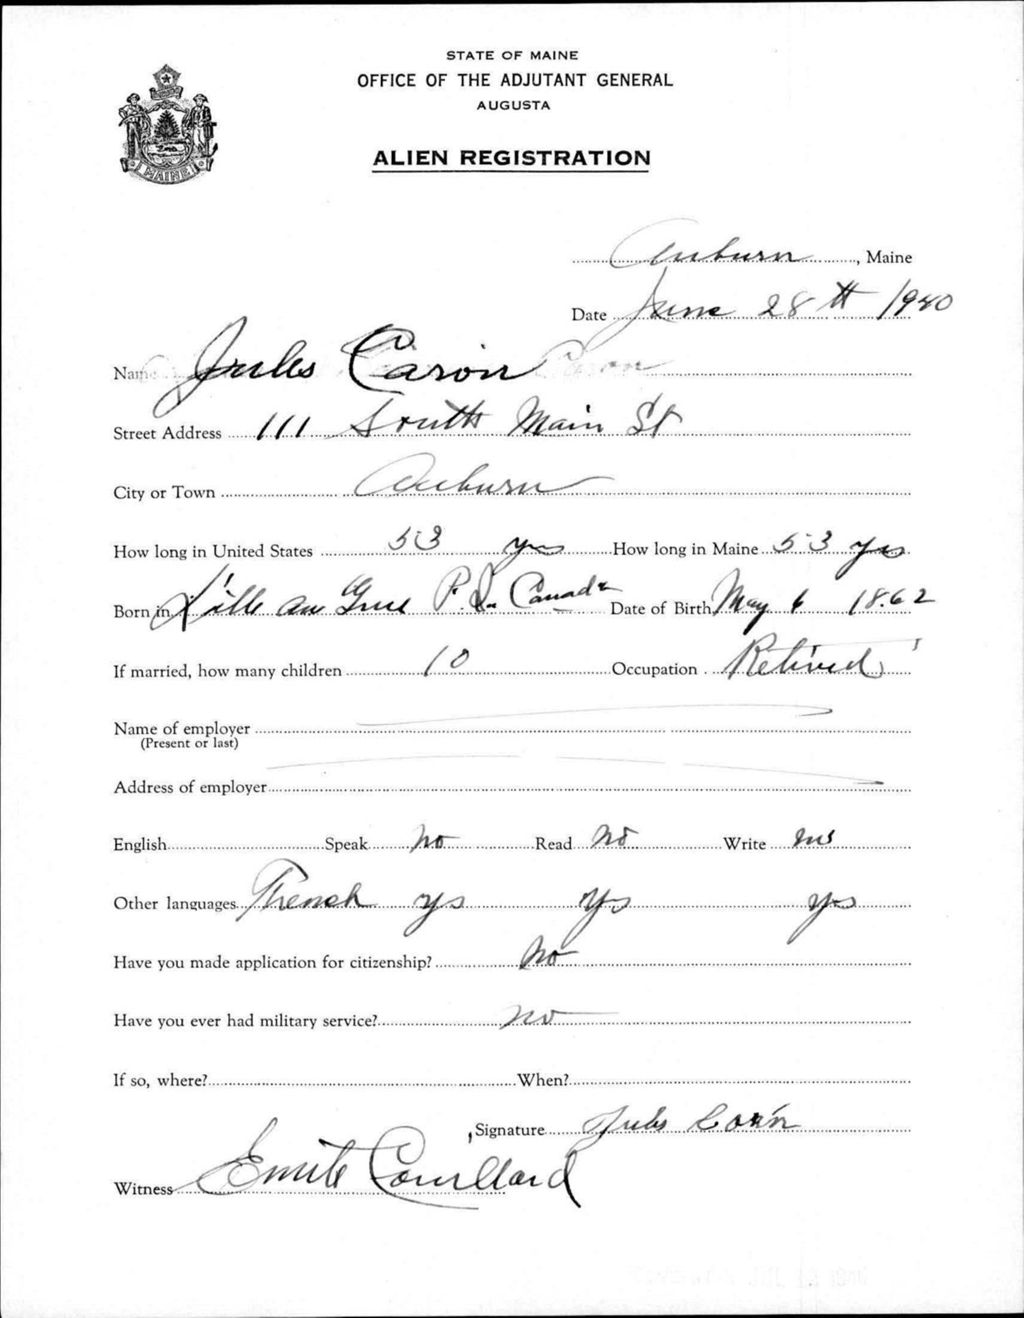 STATE OF MAINE
OFFICE OF THE ADJUTANT GENERAL
AUGUSTA
MAINE
ALIEN REGISTRATION
Auburn, Maine
Date June 28th 1940
Name Jules Caron Caron
Street Address 111 South Main St
City or Town Auburn
How long in United States 53 yrs How long in Maine 53 yrs
Born in P. Q. Canada Date of Birth May 6 1862
If married, how many children 10 Occupation Retired
Name of employer
(Present or last)
Address of employer
English Speak No Read No Write no
Other languages French yes yes yes
Have you made application for citizenship? No
Have you ever had military service? no
If so, where? When?
Signature Jules Caron
Witness Emile Couillard